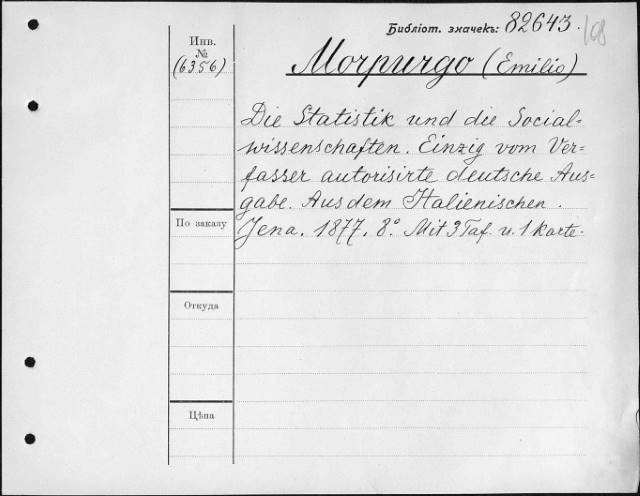 Библіот. значекъ: 82643. 108
Инв.
№
(6356)
Morpurgo (Emilio)
Die Statistik und die Social=
wissenschaften. Einzig vom Ver=
fasser autorisirte deutsche Aus=
gabe. Aus dem Italienischen.
Jena. 1877. 8° Mit 3 Taf. u. 1 Karte.
По заказу
Откуда
Цѣна